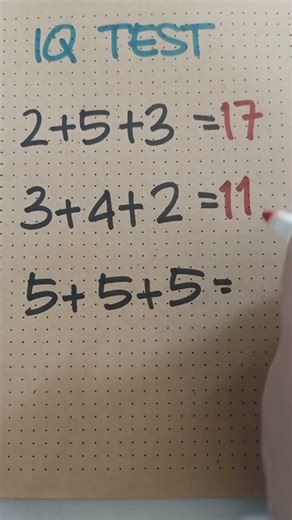 IQ TEST
2+5+3 =17
3+4+2 =11
5+5+5=